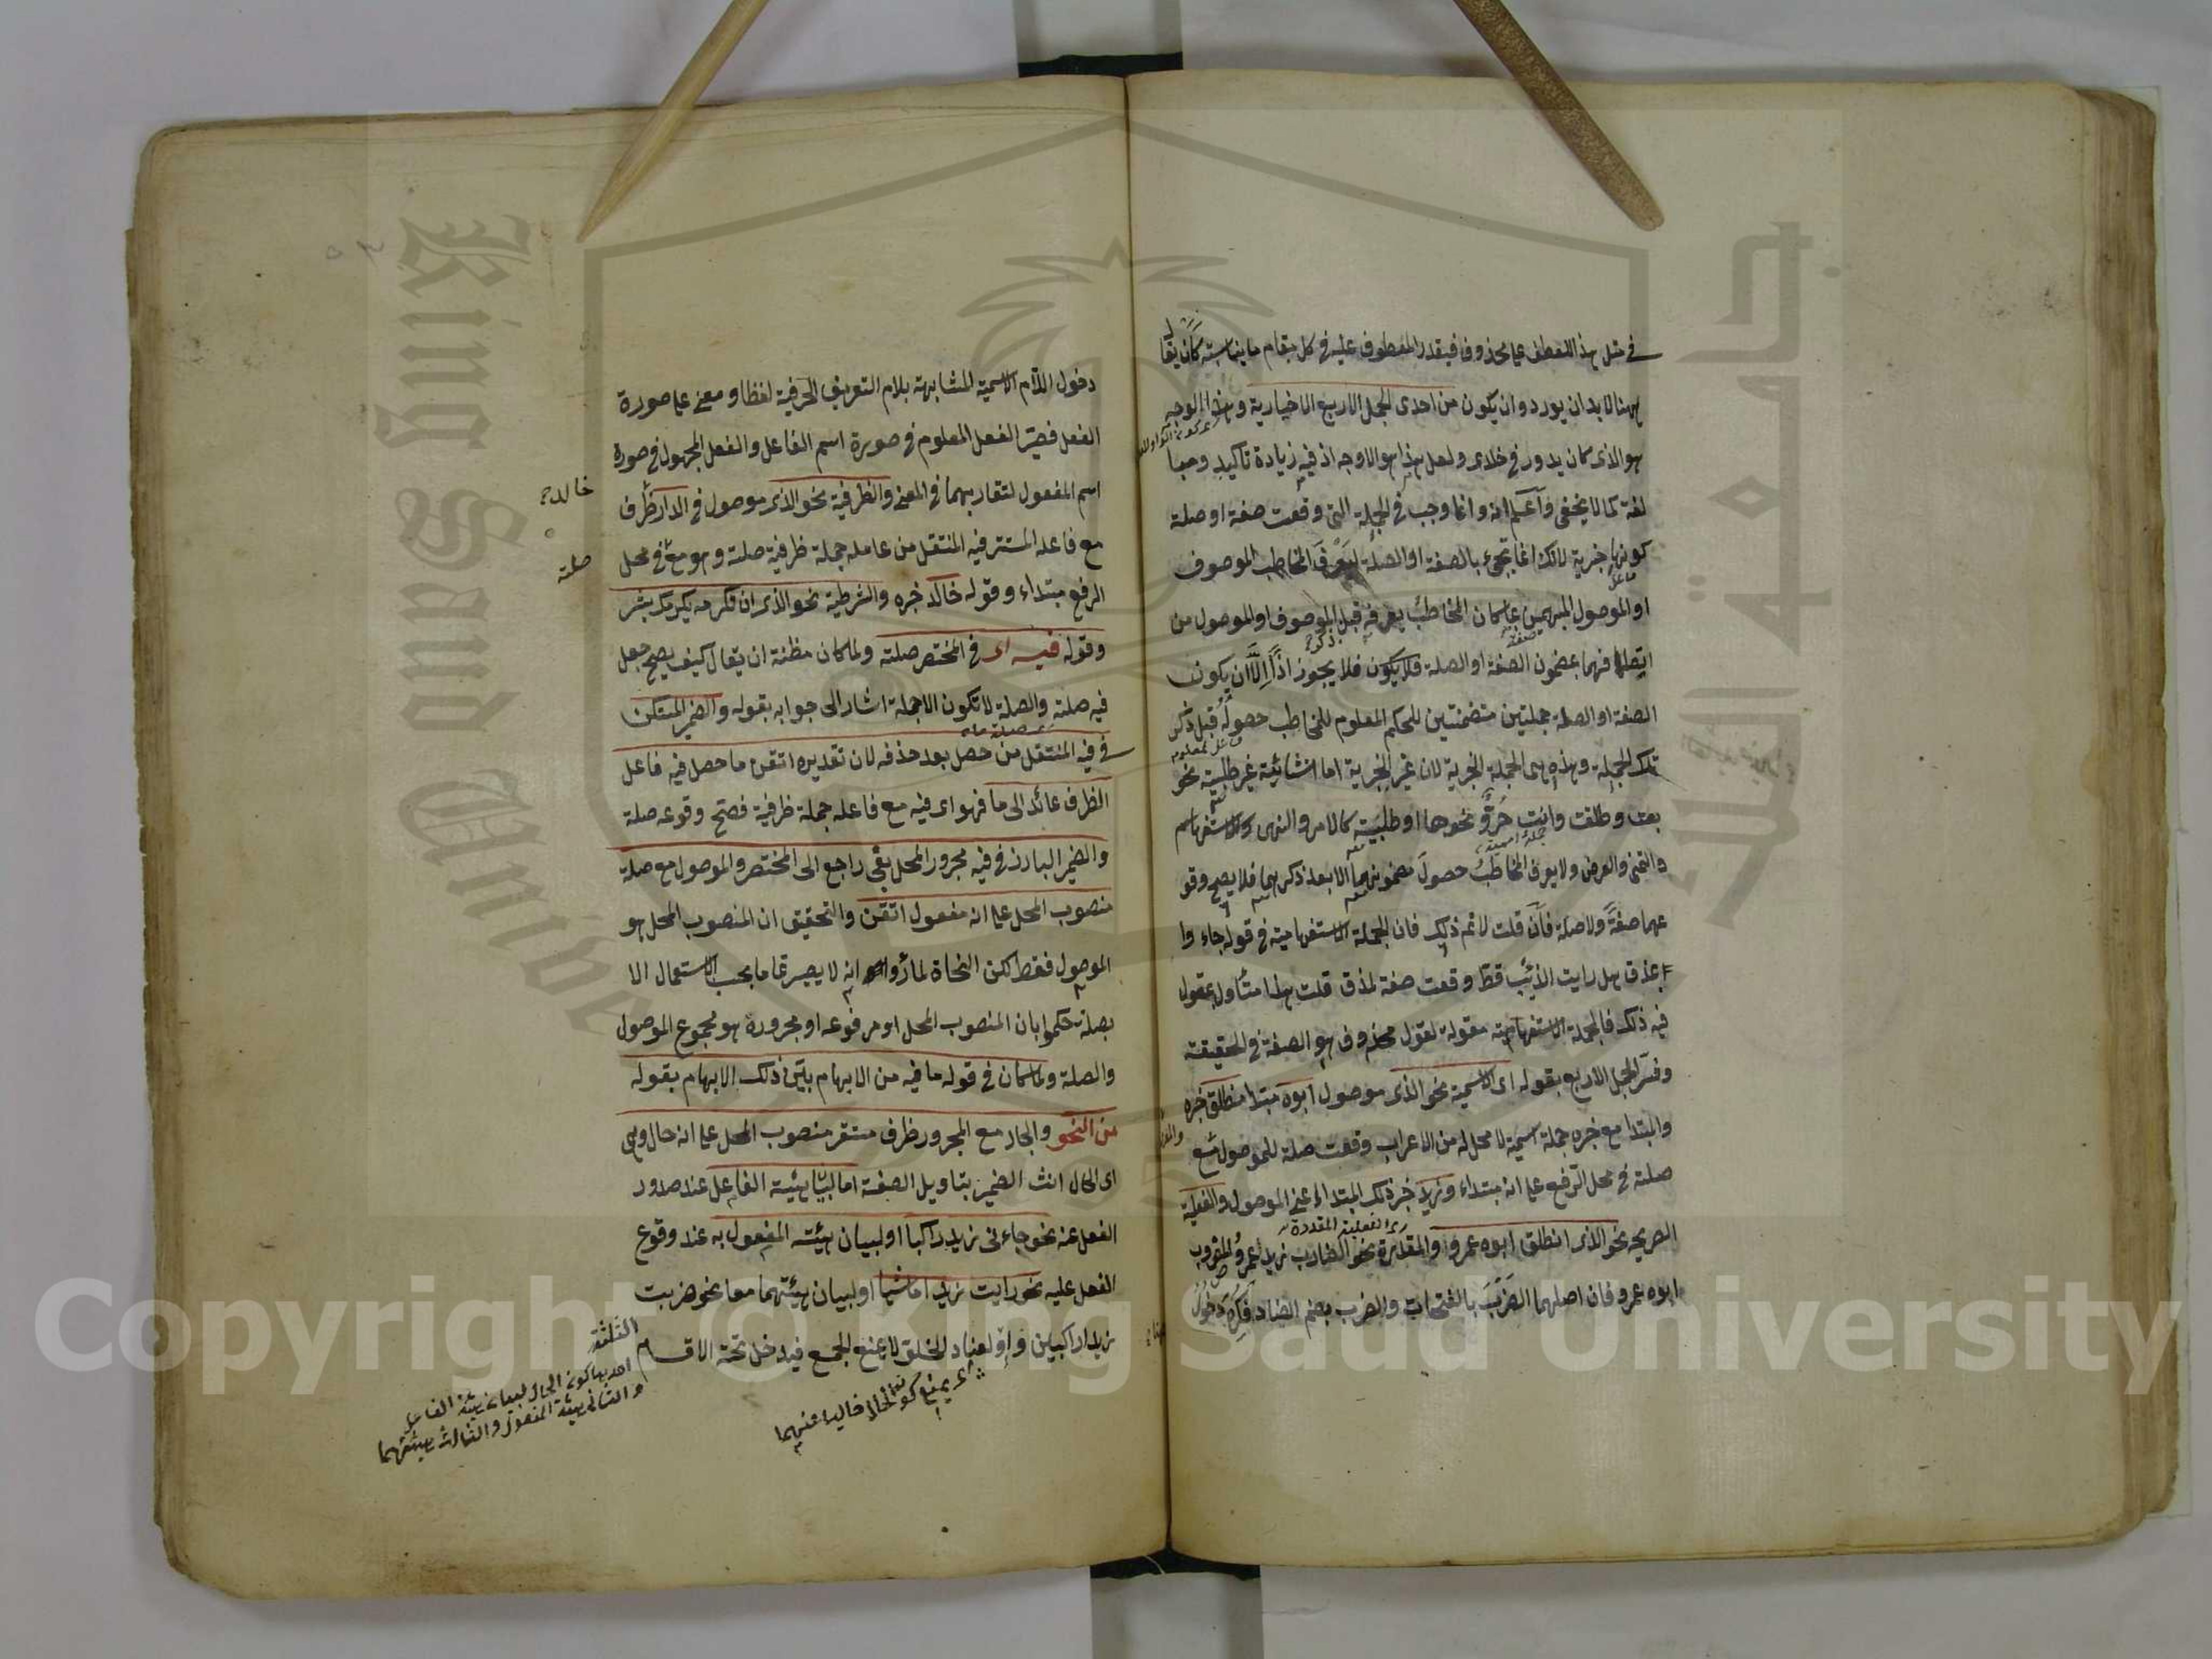 في مثل هذا للعطف على محذوف فيقدر المعطوف عليه في كل مقام ما يناسبه كأن يقال
ههنا لابد ان يورد وان يكون من احدى الجمل الاربع الاخبارية وهذا الوجه
هو الذى كان يدور في خلدى ولعل هذا هو الاوجه اذ فيه زيادة تاكيد ومبا
لغة كما لا يخفى واعلم انه وانما وجب في الجملة التى وقعت صفة او صلة
كونها خبرية لانك انما تجئ بالصفة او الصلة ليعرف المخاطب الموصوف
او الموصول المبهمين بما كان المخاطب يعرفه قبل الموصوف او الموصول من
اتصافهما بمضمون الصفة او الصلة فلا يجوز اذا الا ان يكون
الصفة او الصلة جملتين متضمنتين للحكم المعلوم للمخاطب حصوله قبل ذكر
تلك الجملة وهذه هى الجملة الخبرية لان غير الخبرية اما انشائية غير طلبية نحو
بعت وطلقت وانت حر ونحوها او طلبية كالامر والنهى والاستفهام
والتمنى والعرض ولا يعرف المخاطب حصول مضمونهما الا بعد ذكرهما فلا يصح وقو
عهما صفة ولا صلة فان قلت لا نم ذلك فان الجملة الاستفهامية في قوله جاءوا
بمذق هل رايت الذئب قط وقعت صفة لمذق قلت هذا متأول بمقول
فيه ذلك فالجملة الاستفهامية مقولة لقول محذوف هو الصفة في الحقيقة
وفسر الجمل الاربع بقوله اى الاسمية نحو الذى موصول ابوه مبتدا منطلق خبره
والمبتدا مع خبره جملة اسمية لا محل له من الاعراب وقعت صلة للموصول مع
صلته في محل الرفع على انه مبتداء وزيد خبر ذلك المبتداء اعنى الموصول والفعلية
اى الفعلية المقدرة
الصريحة نحو الذى انطلق ابوه عمرو والمقدرة نحو الضارب زيدا عمرو والمضروب
ابوه عمرو فان اصلهما الضرب بالفتحات والضرب بضم الضاد فكره دخول
دخول اللام الاسمية المشابهة بلام التعريف الحرفية لفظا ومعنى على صورة
الفعل فصير الفعل المعلوم في صورة اسم الفاعل والفعل المجهول في صورة
اسم المفعول لتقاربهما في المعنى والظرفية نحو الذى موصول في الدار ظرف
خالد
مع فاعله المستتر فيه المنتقل من عامله جملة ظرفية صلته وهو مع في محل
صلته
الرفع مبتداء وقوله خالد خبره والشرطية نحو الذى ان تكرمه يكرمك بشر
وقوله فيه اى في المختصر صلته ولما كان مظنة ان يقال كيف يصح جعل
فيه صلته والصلة لا تكون الا جملة اشار الى جوابه بقوله والضمير المستكن
في فيه المنتقل من حصل بعد حذفه لان تقديره اتقن ما حصل فيه فاعل
الظرف عائد الى ما فهو اى فيه مع فاعله جملة ظرفية فصح وقوعه صلة
والضمير البارز في فيه مجرور المحل بفى راجع الى المختصر والموصول مع صلة
منصوب المحل على انه مفعول اتقن والتحقيق ان المنصوب المحل هو
الموصول فقط لكن النحاة لما رأوا انه لا يصير تماما بحسب الاستعمال الا
بصلة حكموا بان المنصوب المحل او مرفوعه او مجروره هو مجموع الموصول
والصلة ولما كان في قوله ما فيه من الابهام بيّن ذلك الابهام بقوله
من النحو والجار مع المجرور ظرف مستقر منصوب المحل على انه حال وهى
اى الحال انث الضمير بتاويل الصفة اما لبيان هيئة الفاعل عند صدور
الفعل عنه نحو جاءنى زيد راكبا او لبيان هيئة المفعول به عند وقوع
الفعل عليه نحو رايت زيدا ماشيا او لبيان هيئتهما معا نحو ضربت
زيدا راكبين واو لعناد الخلو لا يمنع الجمع فيدخل تحته الاقسام
الثلثة
احديها كونه الحال لبيان هيئة الفاعل
والثانى هيئة المفعول والثالث هيئتهما
اى يمنع كون الحال خاليا عنهما